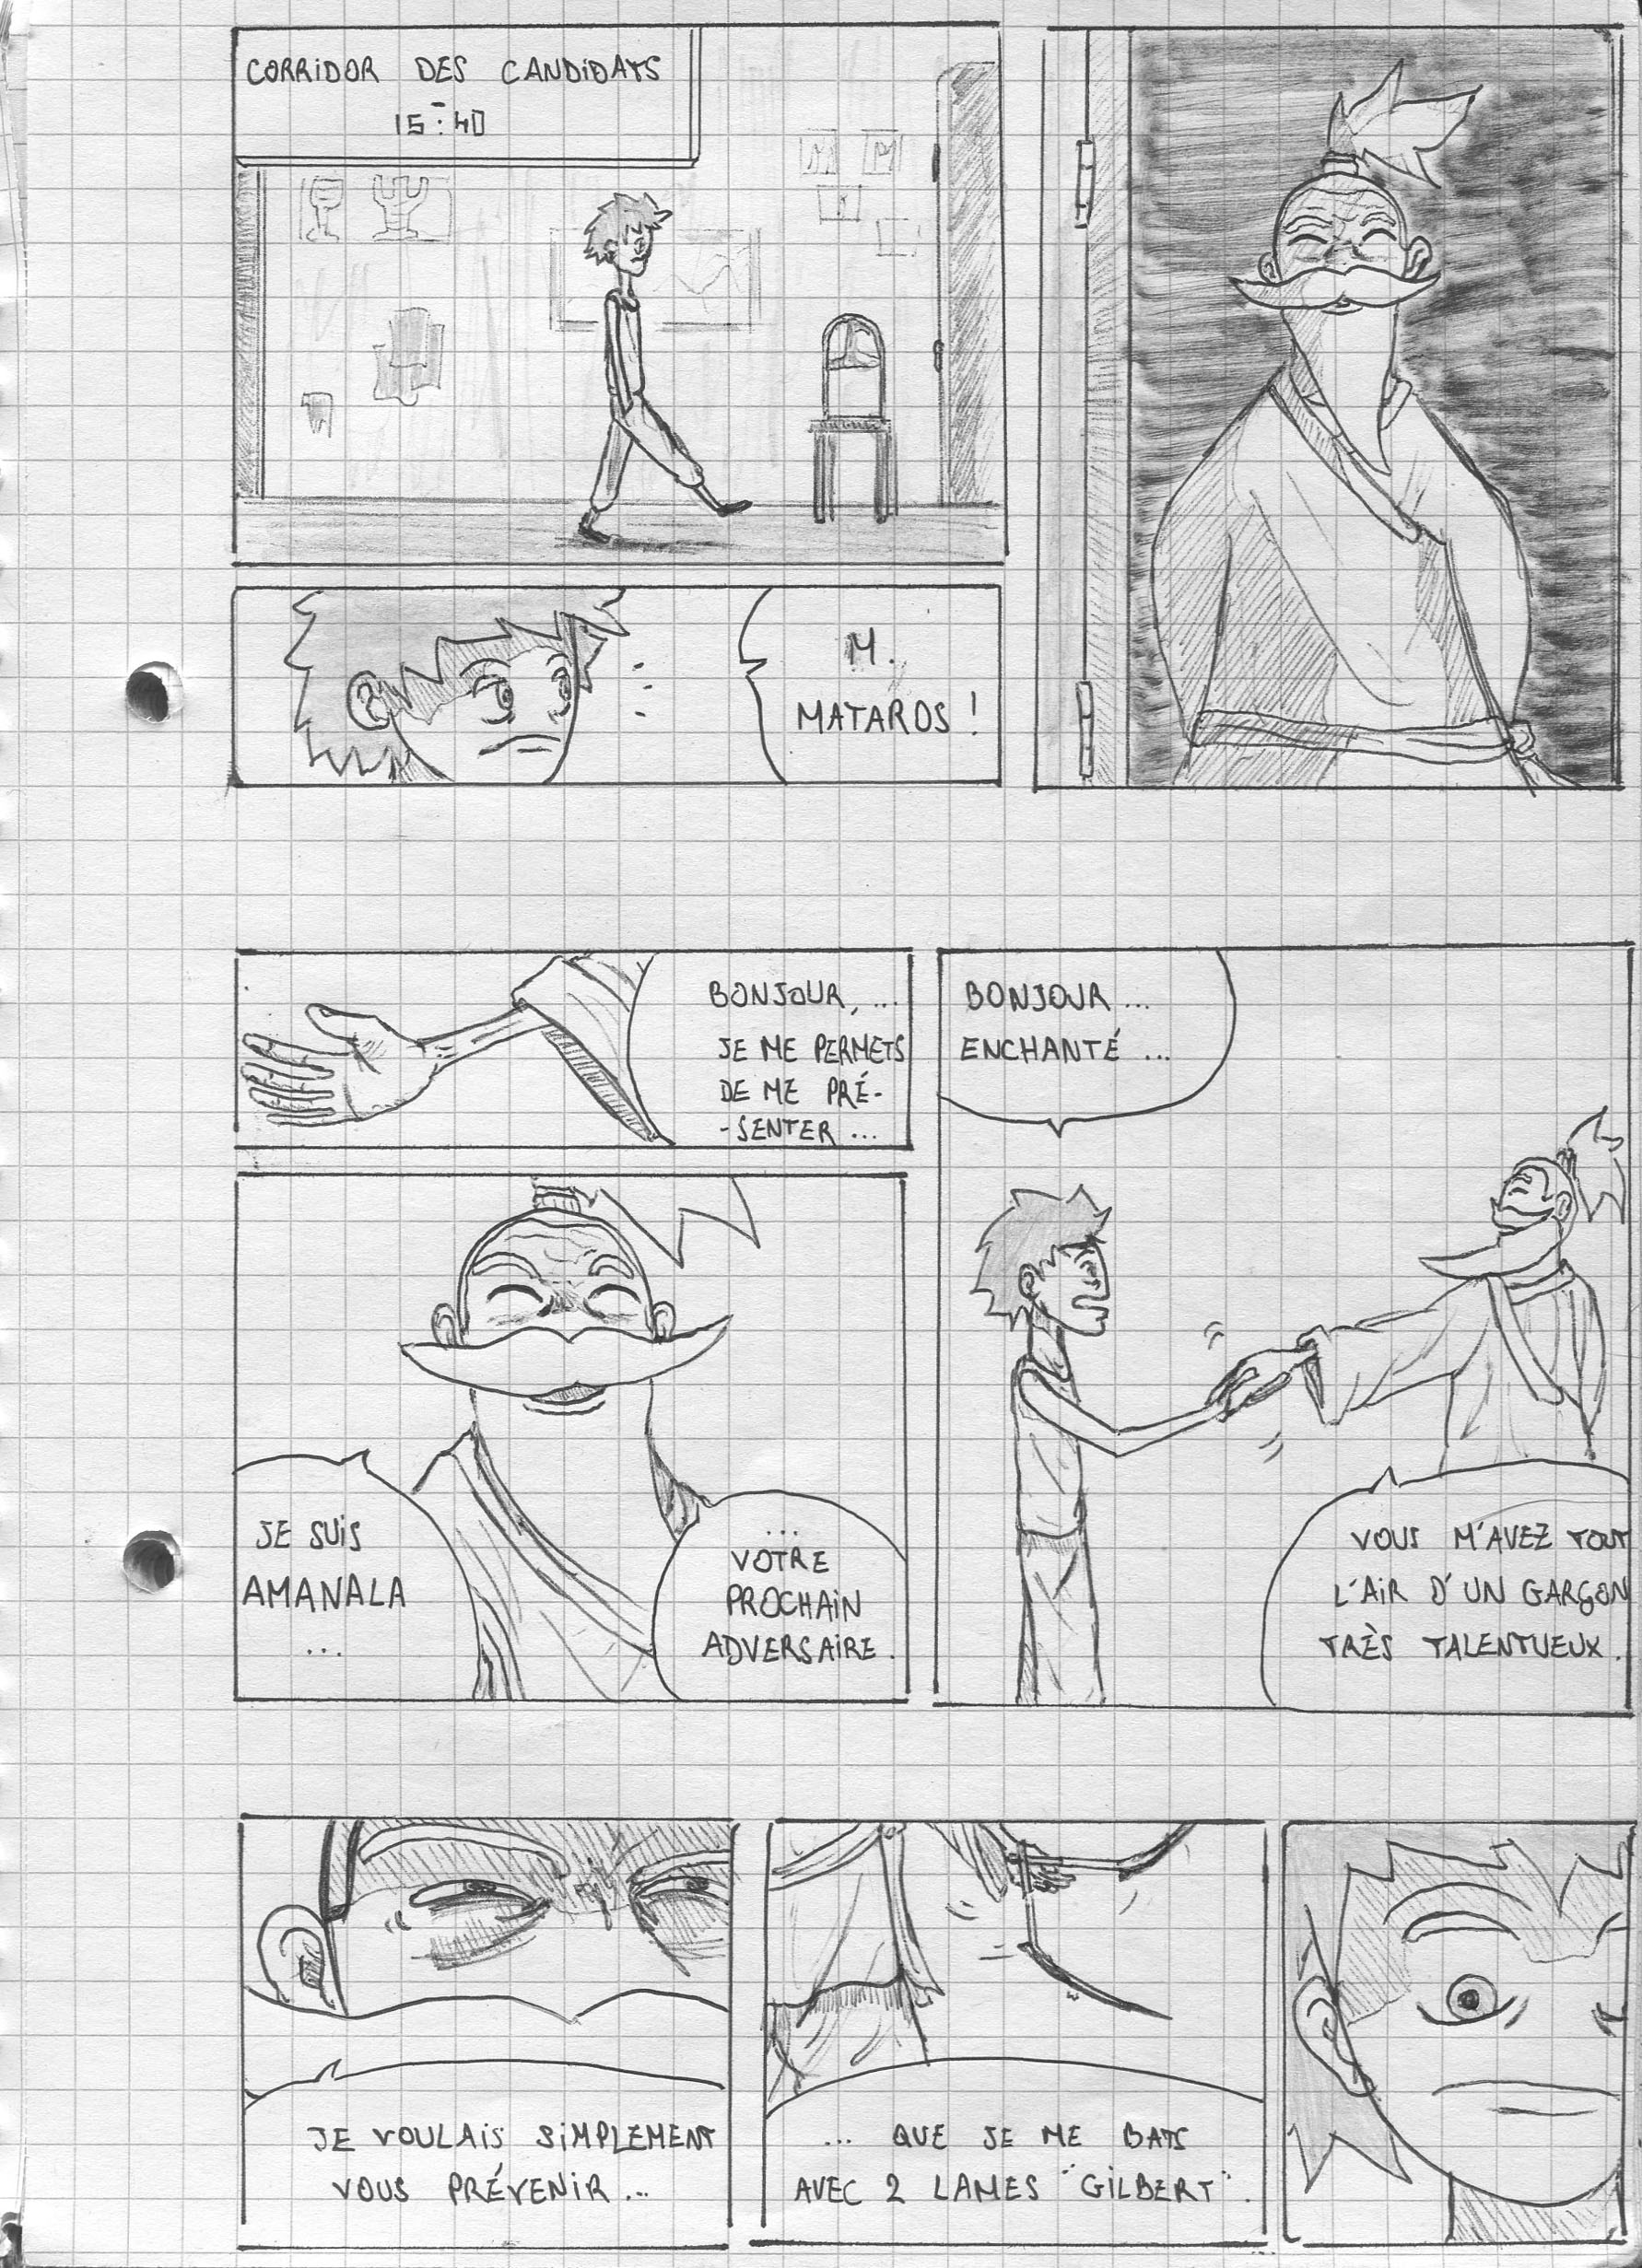 CORRIDOR DES CANDIDATS
15:40
M.
MATAROS !
BONJOUR, ...
JE ME PERMETS
DE ME PRÉ-
-SENTER ...
JE SUIS
AMANALA
...
...
VOTRE
PROCHAIN
ADVERSAIRE.
BONJOUR ...
ENCHANTÉ ...
VOUS M'AVEZ TOUT
L'AIR D'UN GARÇON
TRÈS TALENTUEUX.
JE VOULAIS SIMPLEMENT
VOUS PRÉVENIR ...
... QUE JE ME BATS
AVEC 2 LAMES "GILBERT".